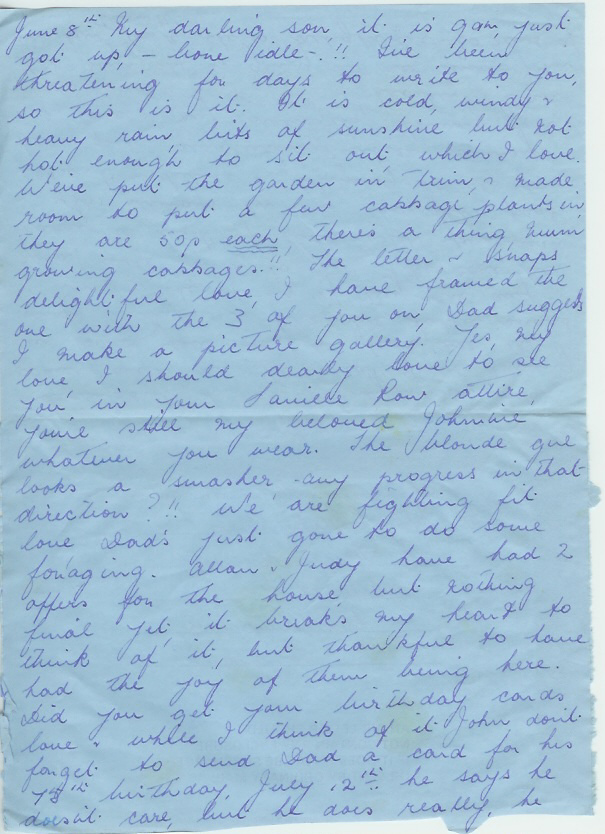 June 8th My darling son, it is 9am just
got up, - bone idle -!!! I've been
threatening for days to write to you,
so this is it. It is cold, windy &
heavy rain bits of sunshine but not
hot enough to sit out which I love.
We've put the garden in trim, & made
room to put a few cabbage plants in
they are 50p each, there's a thing Mum
growing cabbages.!! The letter & snaps
delightful love, I have framed the
one with the 3 of you on, Dad suggests
I make a picture gallery. Yes, my
love, I should dearly love to see
you, in your Row attire,
you're still my beloved Johnnie
whatever you wear. The blonde one
looks a smasher - any progress in that
direction?!! We are fighting fit
love Dad's just gone to do some
foraging. Allan & Judy have had 2
offers for the house, but nothing
final yet, it breaks my heart to
think of it, but thankful to have
had the joy of them being here.
Did you get your birthday cards
love & while I think of it John don't
forget to send Dad a card for his
birthday, July 12th he says he
doesn't care, but he does really, he